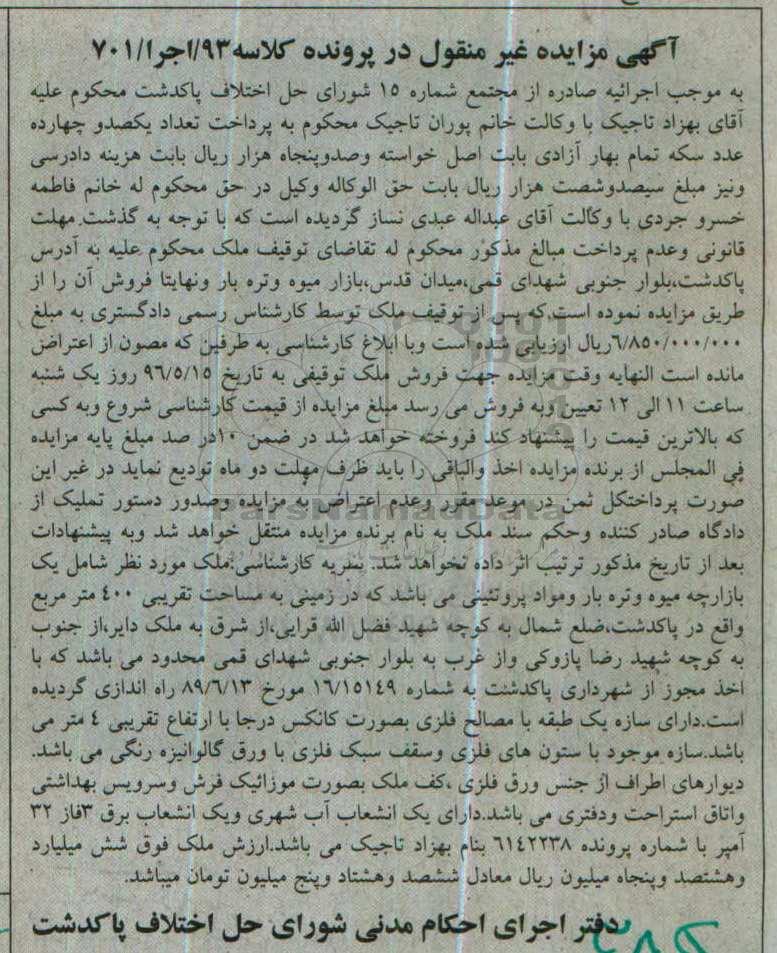 آگهی مزایده غیر منقول در پرونده کلاسه۹۳/اجرا/۷۰۱
به موجب اجرائیه صادره از مجتمع شماره ۱۵ شورای حل اختلاف پاکدشت محکوم علیه
آقای بهزاد تاجیک با وکالت خانم پوران تاجیک محکوم به پرداخت تعداد یکصدو چهارده
عدد سکه تمام بهار آزادی بابت اصل خواسته وصدوپنجاه هزار ریال بابت هزینه دادرسی
ونیز مبلغ سیصدوشصت هزار ریال بابت حق الوکاله وکیل در حق محکوم له خانم فاطمه
خسرو جردی با وکالت آقای عبداله عبدی نساز گردیده است که با توجه به گذشت مهلت
قانونی وعدم پرداخت مبالغ مذکور محکوم له تقاضای توقیف ملک محکوم علیه به آدرس
پاکدشت،بلوار جنوبی شهدای قمی،میدان قدس،بازار میوه وتره بار ونهایتا فروش آن را از
طریق مزایده نموده است.که پس از توقیف ملک توسط کارشناس رسمی دادگستری به مبلغ
۶/۸۵۰/۰۰۰/۰۰۰ریال ارزیابی شده است وبا ابلاغ کارشناسی به طرفین که مصون از اعتراض
مانده است النهایه وقت مزایده جهت فروش ملک توقیفی به تاریخ ۹۶/۵/۱۵ روز یک شنبه
ساعت ۱۱ الی ۱۲ تعیین وبه فروش می رسد مبلغ مزایده از قیمت کارشناسی شروع وبه کسی
که بالاترین قیمت را پیشنهاد کند فروخته خواهد شد در ضمن ۱۰در صد مبلغ پایه مزایده
فی المجلس از برنده مزایده اخذ والباقی را باید ظرف مهلت دو ماه تودیع نماید در غیر این
صورت پرداختکل ثمن در موعد مقرر وعدم اعتراض به مزایده وصدور دستور تملیک از
دادگاه صادر کننده وحکم سند ملک به نام برنده مزایده منتقل خواهد شد وبه پیشنهادات
بعد از تاریخ مذکور ترتیب اثر داده نخواهد شد. نظریه کارشناسی:ملک مورد نظر شامل یک
بازارچه میوه وتره بار ومواد پروتئینی می باشد که در زمینی به مساحت تقریبی ۴۰۰ متر مربع
واقع در پاکدشت،ضلع شمال به کوچه شهید فضل الله قرایی،از شرق به ملک دایر،از جنوب
به کوچه شهید رضا پازوکی واز غرب به بلوار جنوبی شهدای قمی محدود می باشد که با
اخذ مجوز از شهرداری پاکدشت به شماره ۱۶/۱۵۱۴۹ مورخ ۸۹/۶/۱۳ راه اندازی گردیده
است.دارای سازه یک طبقه با مصالح فلزی بصورت کانکس درجا با ارتفاع تقریبی ۴ متر می
باشد.سازه موجود با ستون های فلزی وسقف سبک فلزی با ورق گالوانیزه رنگی می باشد.
دیوارهای اطراف از جنس ورق فلزی ،کف ملک بصورت موزائیک فرش وسرویس بهداشتی
واتاق استراحت ودفتری می باشد.دارای یک انشعاب آب شهری ویک انشعاب برق ۳فاز ۳۲
آمپر با شماره پرونده ۶۱۴۲۲۳۸ بنام بهزاد تاجیک می باشد.ارزش ملک فوق شش میلیارد
وهشتصد وپنجاه میلیون ریال معادل ششصد وهشتاد وپنج میلیون تومان میباشد.
دفتر اجرای احکام مدنی شورای حل اختلاف پاکدشت
ParsNamadData